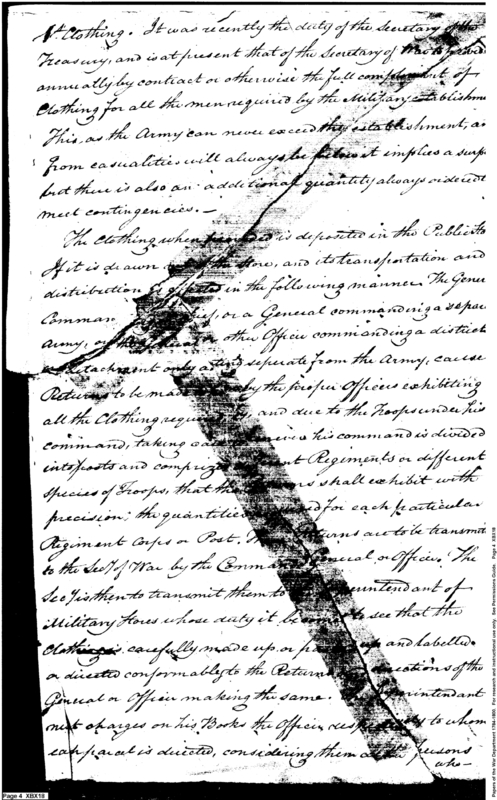 Clothing. It was recently the duty of the Secretary of the
Treasury, and is at present that of the Secretary of War to
annually by contract or otherwise the full complement of
Clothing for all the men required by the Military establishme
This, as the Army can never exceed the establishment, an
from casualities will always be below it implies a surp
but there is also an additional quantity always ordered
meet contingencies.—
The Clothing when is deposited in the Public Sto
If it is drawn the Store, and its transportation and
distribution in the following manner. The Gene
Comman or a General commanding a separ
Army, or other Officer commanding a district
detachment only acting seperate from the Army, cause
Returns to be made by the proper Officers exhibiting
all the Clothing requi and due to the Troops under his
command, taking care his command is divided
into posts and Regiments or different
species of Troops, that the shall exhibit with
precision the quantities for each particular
Regiment Corps or Post. The Returns are to be transmit
to the Secy of War by the Comman General or Officer. The
Secy is then to transmit them to intendant of
Military Stores whose duty it to see that the
Clothing is carefully made up or up and labelled
or directed conformably to the Return of the
General or Officer making the same. intendant
next charges on his Books the Officer to whom
each parcel is directed, considering them as the persons
who—
Page 4 XBX18
Papers of the War Department 1784-1800. For research and instructional use only. See Permissions Guide. Page 4 XBX18